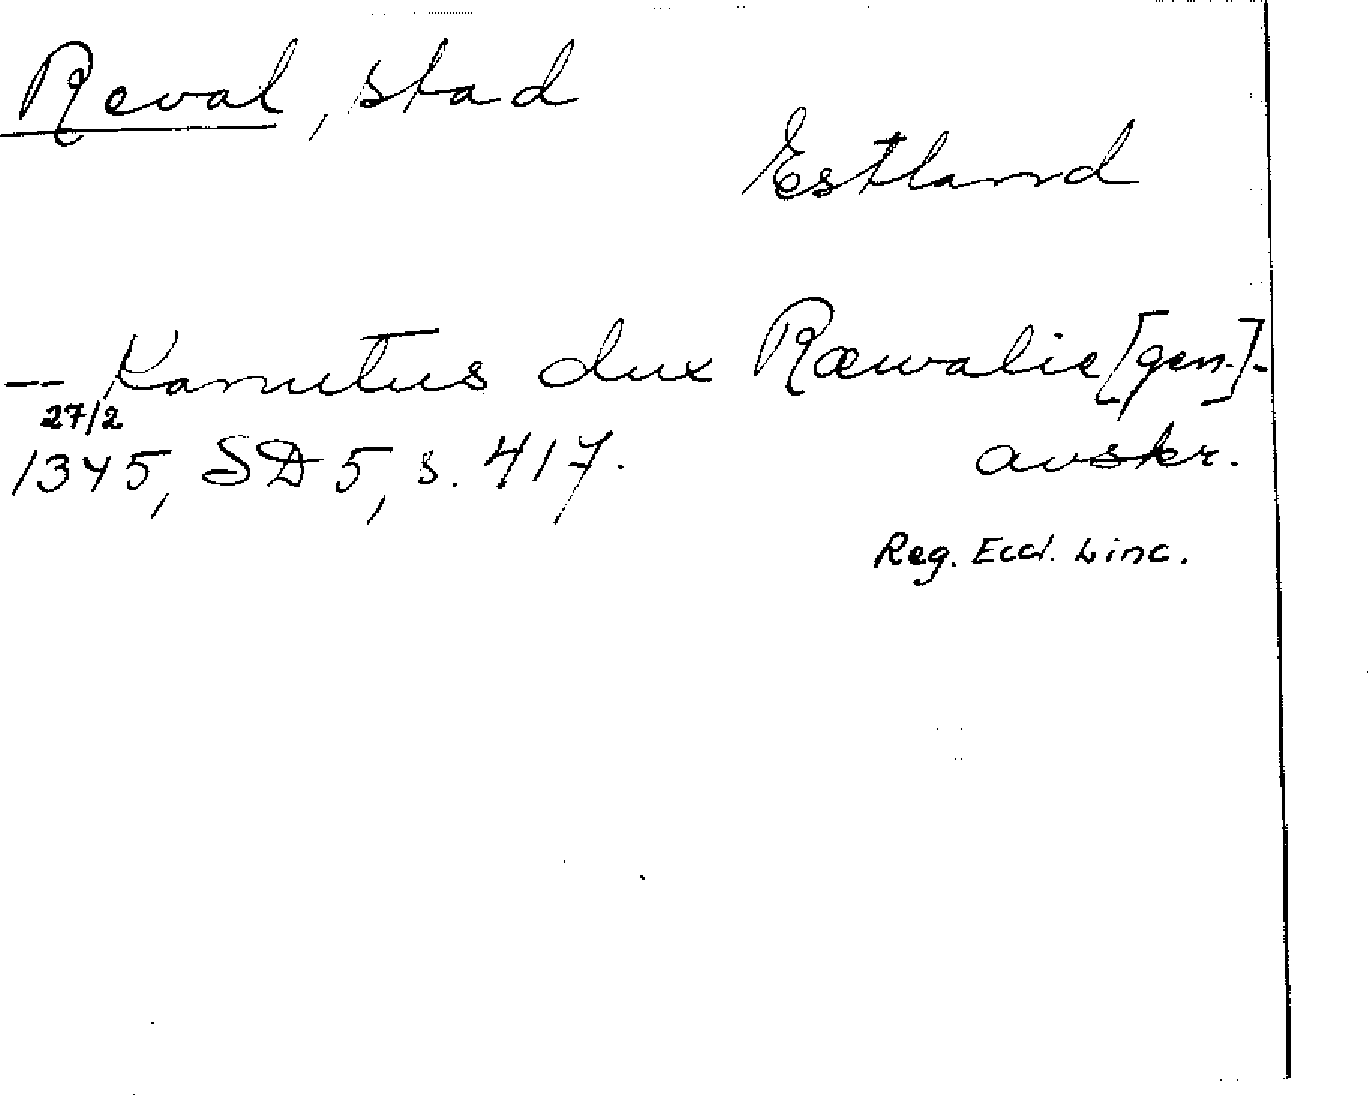 Reval, stad
Estland
-- Kanutus dux Ræwalie [gen.] -
27/2
1345, SD 5, s. 417.
avskr.
Reg. Eccl. Linc.